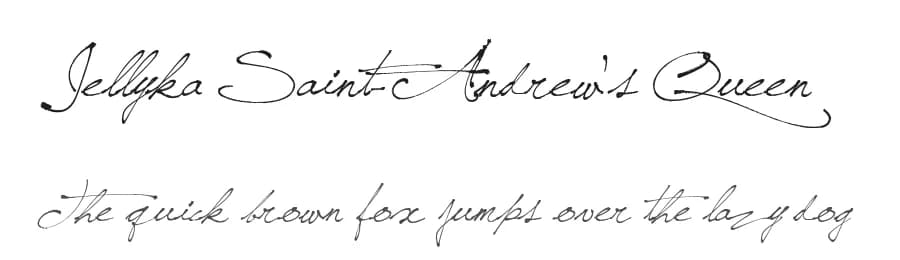 Jellyka Saint-Andrew's Queen
The quick brown fox jumps over the lazy dog